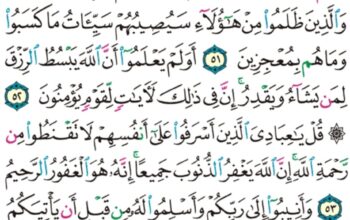 وَٱلَّذِينَ ظَلَمُوا۟ مِنْ هَٰٓؤُلَآءِ سَيُصِيبُهُمْ سَيِّـَٔاتُ مَا كَسَبُوا۟
وَمَا هُم بِمُعْجِزِينَ ٥١ أَوَلَمْ يَعْلَمُوٓا۟ أَنَّ ٱللَّهَ يَبْسُطُ ٱلرِّزْقَ
لِمَن يَشَآءُ وَيَقْدِرُ ۚ إِنَّ فِى ذَٰلِكَ لَـَٔايَٰتٍ لِّقَوْمٍ يُؤْمِنُونَ ٥٢
۞ قُلْ يَٰعِبَادِىَ ٱلَّذِينَ أَسْرَفُوا۟ عَلَىٰٓ أَنفُسِهِمْ لَا تَقْنَطُوا۟ مِن
رَّحْمَةِ ٱللَّهِ ۚ إِنَّ ٱللَّهَ يَغْفِرُ ٱلذُّنُوبَ جَمِيعًا ۚ إِنَّهُۥ هُوَ ٱلْغَفُورُ ٱلرَّحِيمُ
٥٣ وَأَنِيبُوٓا۟ إِلَىٰ رَبِّكُمْ وَأَسْلِمُوا۟ لَهُۥ مِن قَبْلِ أَن يَأْتِيَكُمُ